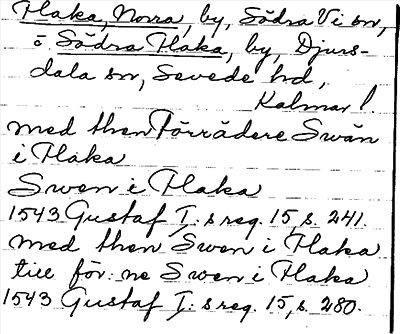 Flaka, Norra, by, Södra Vi sn,
o Södra Flaka, by, Djurs-
dala sn, Sevede hd,
Kalmar l.
med then Förrädere Swän
i Flaka
Swen i Flaka
1543 Gustaf I:s reg. 15, s. 241.
med then Swen i Flaka
till för:ne Swen i Flaka
1543 Gustaf I:s reg. 15, s. 280.